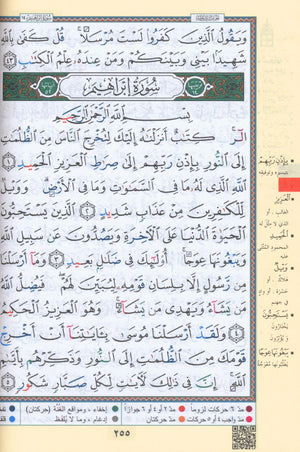 وَيَقُولُ ٱلَّذِينَ كَفَرُوا۟ لَسْتَ مُرْسَلًا ۚ قُلْ كَفَىٰ بِٱللَّهِ
شَهِيدًۢا بَيْنِى وَبَيْنَكُمْ وَمَنْ عِندَهُۥ عِلْمُ ٱلْكِتَٰبِ ﴿٤٣﴾
سُورَةُ إِبْرَاهِيمَ
بِسْمِ ٱللَّهِ ٱلرَّحْمَٰنِ ٱلرَّحِيمِ
الٓر ۚ كِتَٰبٌ أَنزَلْنَٰهُ إِلَيْكَ لِتُخْرِجَ ٱلنَّاسَ مِنَ ٱلظُّلُمَٰتِ
إِلَى ٱلنُّورِ بِإِذْنِ رَبِّهِمْ إِلَىٰ صِرَٰطِ ٱلْعَزِيزِ ٱلْحَمِيدِ ﴿١﴾
ٱللَّهِ ٱلَّذِى لَهُۥ مَا فِى ٱلسَّمَٰوَٰتِ وَمَا فِى ٱلْأَرْضِ ۗ وَوَيْلٌ
لِّلْكَٰفِرِينَ مِنْ عَذَابٍ شَدِيدٍ ﴿٢﴾ ٱلَّذِينَ يَسْتَحِبُّونَ
ٱلْحَيَوٰةَ ٱلدُّنْيَا عَلَى ٱلْءَاخِرَةِ وَيَصُدُّونَ عَن سَبِيلِ ٱللَّهِ
وَيَبْغُونَهَا عِوَجًا ۚ أُو۟لَٰٓئِكَ فِى ضَلَٰلٍۭ بَعِيدٍ ﴿٣﴾ وَمَآ أَرْسَلْنَا
مِن رَّسُولٍ إِلَّا بِلِسَانِ قَوْمِهِۦ لِيُبَيِّنَ لَهُمْ ۖ فَيُضِلُّ ٱللَّهُ
مَن يَشَآءُ وَيَهْدِى مَن يَشَآءُ ۚ وَهُوَ ٱلْعَزِيزُ ٱلْحَكِيمُ
﴿٤﴾ وَلَقَدْ أَرْسَلْنَا مُوسَىٰ بِـَٔايَٰتِنَآ أَنْ أَخْرِجْ
قَوْمَكَ مِنَ ٱلظُّلُمَٰتِ إِلَى ٱلنُّورِ وَذَكِّرْهُم بِأَيَّىٰمِ
ٱللَّهِ ۚ إِنَّ فِى ذَٰلِكَ لَءَايَٰتٍ لِّكُلِّ صَبَّارٍ شَكُورٍ ﴿٥﴾
بِإِذْنِ رَبِّهِمْ
ٱلْعَزِيزِ
ٱلْحَمِيدِ
وَيْلٌ
يَسْتَحِبُّونَ
يَبْغُونَهَا عِوَجًا
مد ٦ حركات لزوماً
مد ٢ أو ٤ أو ٦ جوازاً
إخفاء، ومواقع الغُنَّة (حركتان)
مد واجب ٤ أو ٥ حركات
مد حركتان
إدغام، وما لا يُلفَظ
٢٥٥